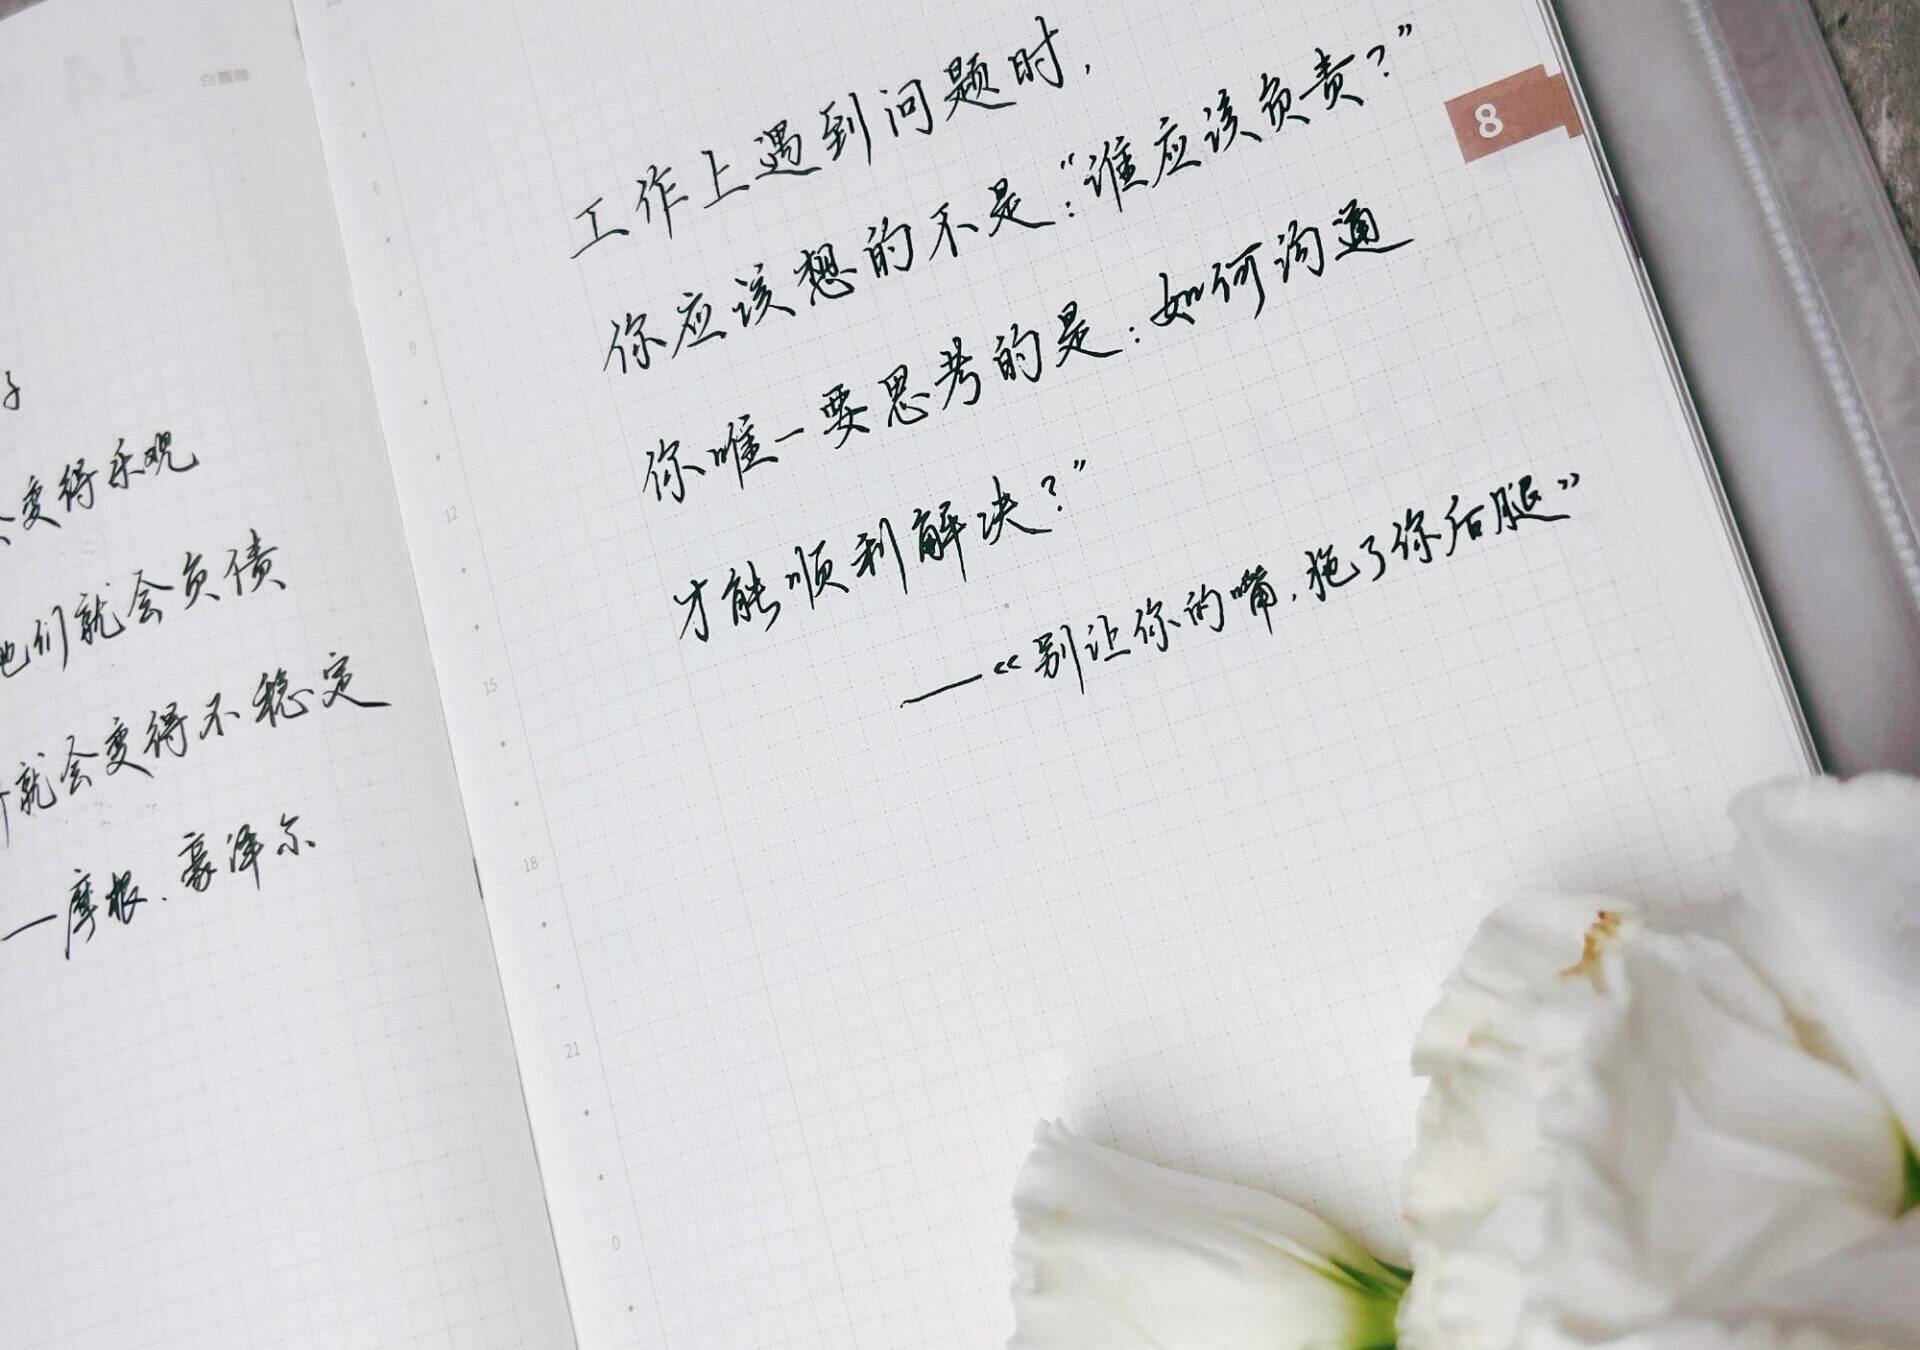 变得乐观
他们就会负债
就会变得不稳定
—摩根.豪泽尔
工作上遇到问题时,
你应该想的不是:“谁应该负责?”
你唯一要思考的是:如何沟通
才能顺利解决?”
——《别让你的嘴,拖了你后腿》
8
6
9
12
15
18
21
0